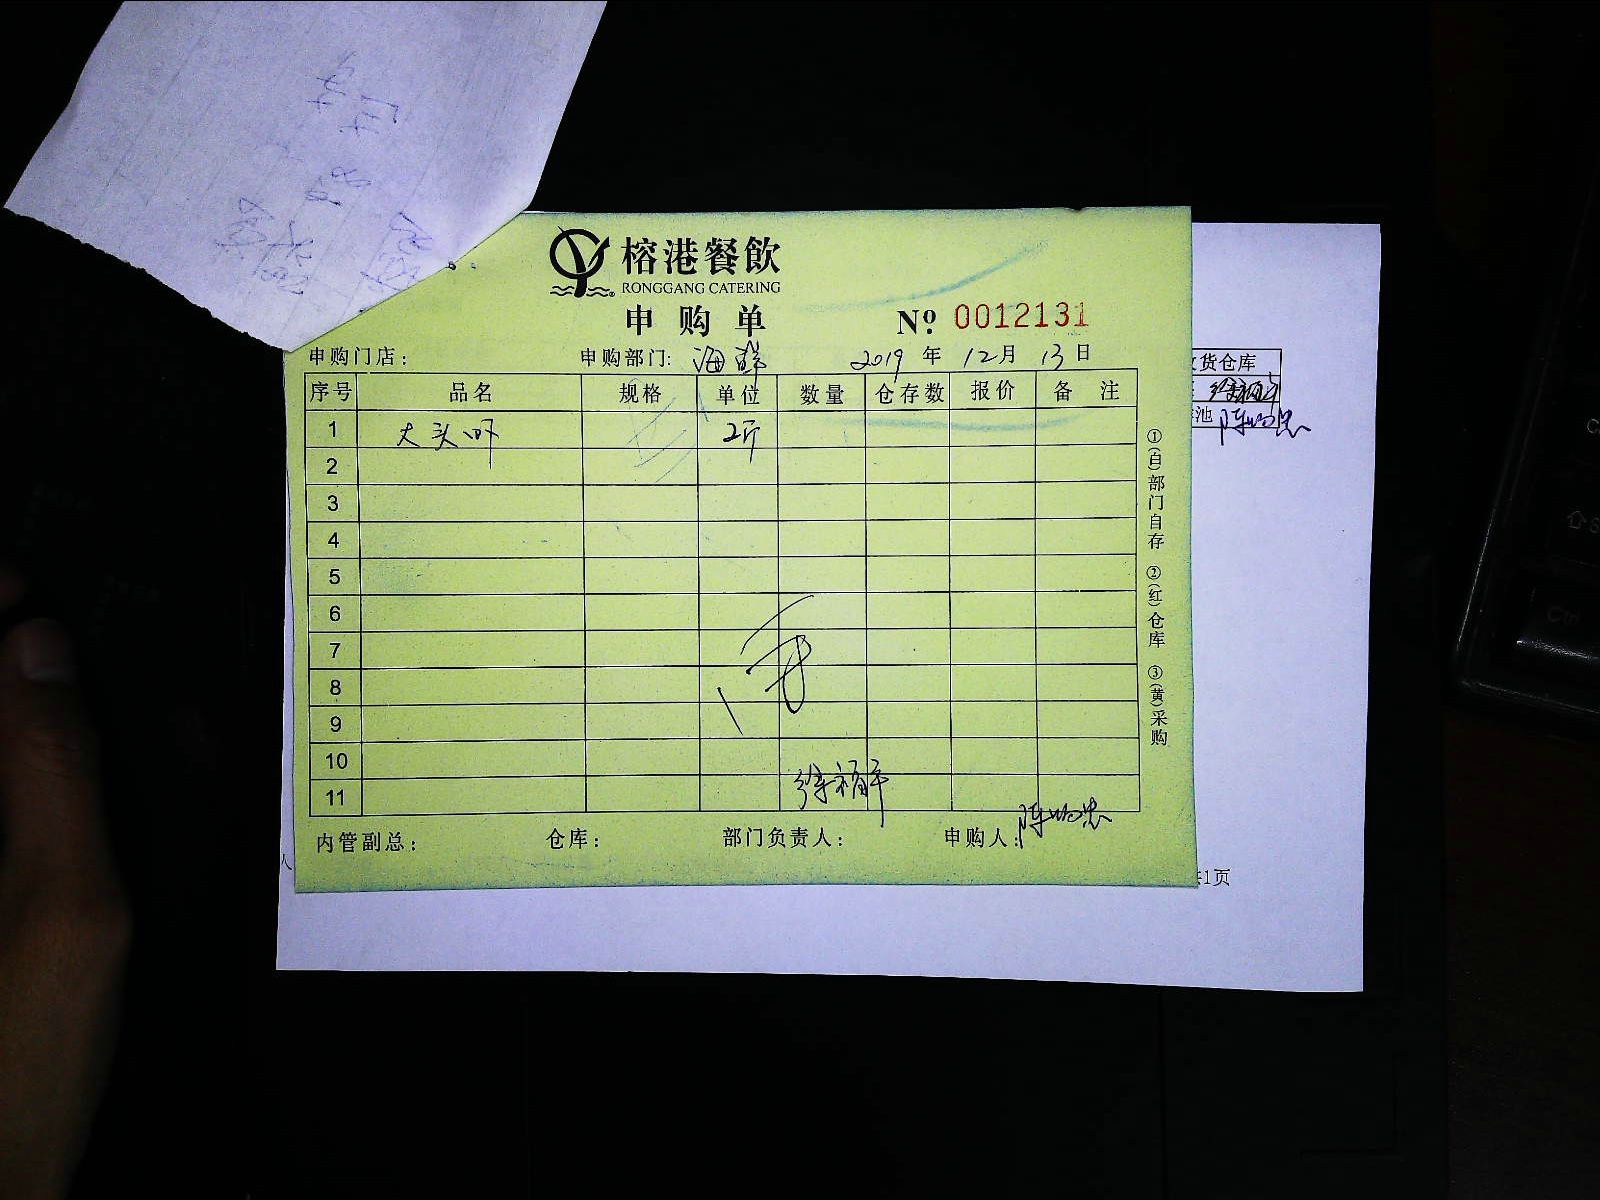 榕港餐飲
RONGGANG CATERING
申购单 Nº 0012131
申购门店： 申购部门：海鲜 2019年12月13日
序号 品名 规格 单位 数量 仓存数 报价 备注
1 大头吓 2斤
2
3
4
5
6
7
8
9
10
11
内管副总： 仓库： 部门负责人： 申购人：
①(白)部门自存 ②(红)仓库 ③(黄)采购
货仓库
池
1页
Ctrl